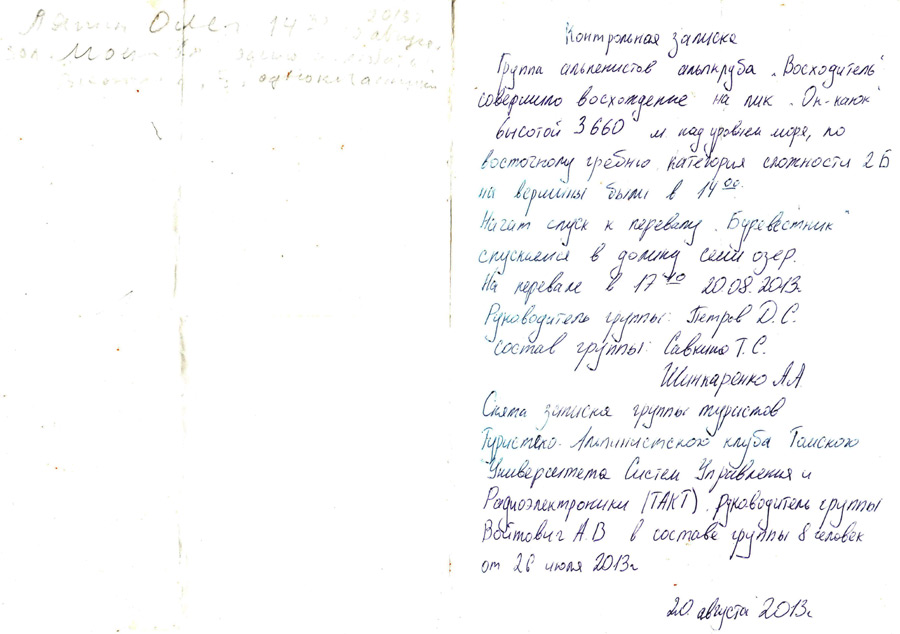 Олег 14 30 2013г
августа
Контрольная записка
Группа альпенистов альпклуба „Восходитель"
совершило восхождение на пик „Он-каюк"
высотой 3660 м над уровнем моря, по
восточному гребню категория сложности 2Б
на вершины были в 14 00.
Начат спуск к перевалу „Буревестник"
спускаемся в долину семи озер.
На перевале в 17 40 20.08.2013г.
Руководитель группы: Петров Д.С.
состав группы: Т.С.
А.А.
Снята записка группы туристов
Туристско-Альпинистского клуба Томского
Университета Систем Управления и
Радиоэлектроники (ТАКТ) руководитель группы
Войтович А.В в составе группы 8 человек
от 26 июля 2013г
20 августа 2013г